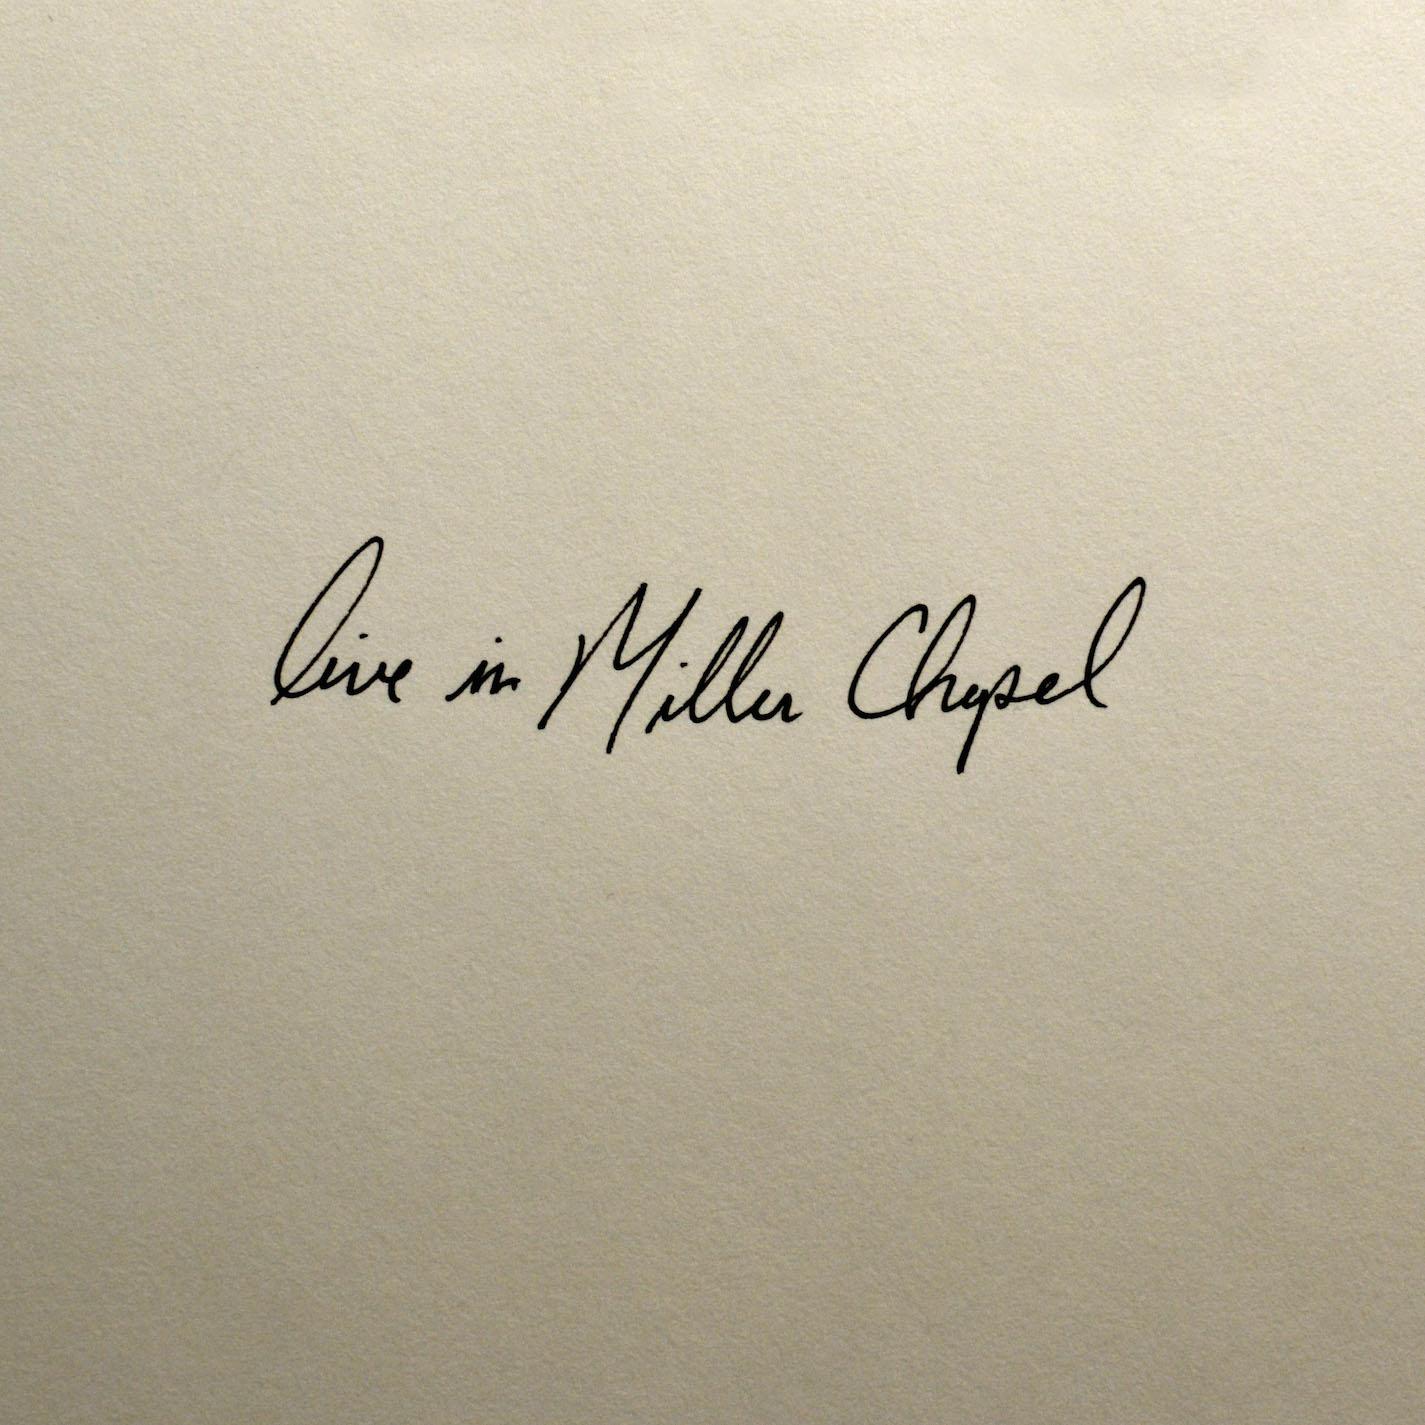 live in Miller Chapel